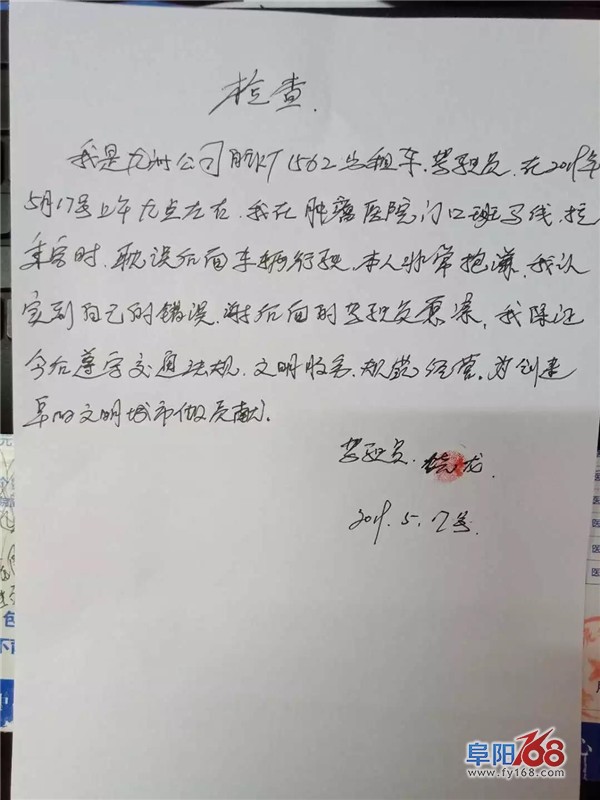 检查.
我是九洲公司皖KT1562出租车.驾驶员.在2019年
5月17号上午九点左右.我在肿瘤医院门口斑马线.拉
乘客时.耽误后面车辆行驶.本人非常抱谦.我认
实到自己的错误.谢后面的驾驶员原谅.我保证
今后遵守交通法规.文明服务.规范经营.为创建
阜阳文明城市做贡献.
驾驶员.龙.
2019.5.17号.
阜阳168
www.fy168.com